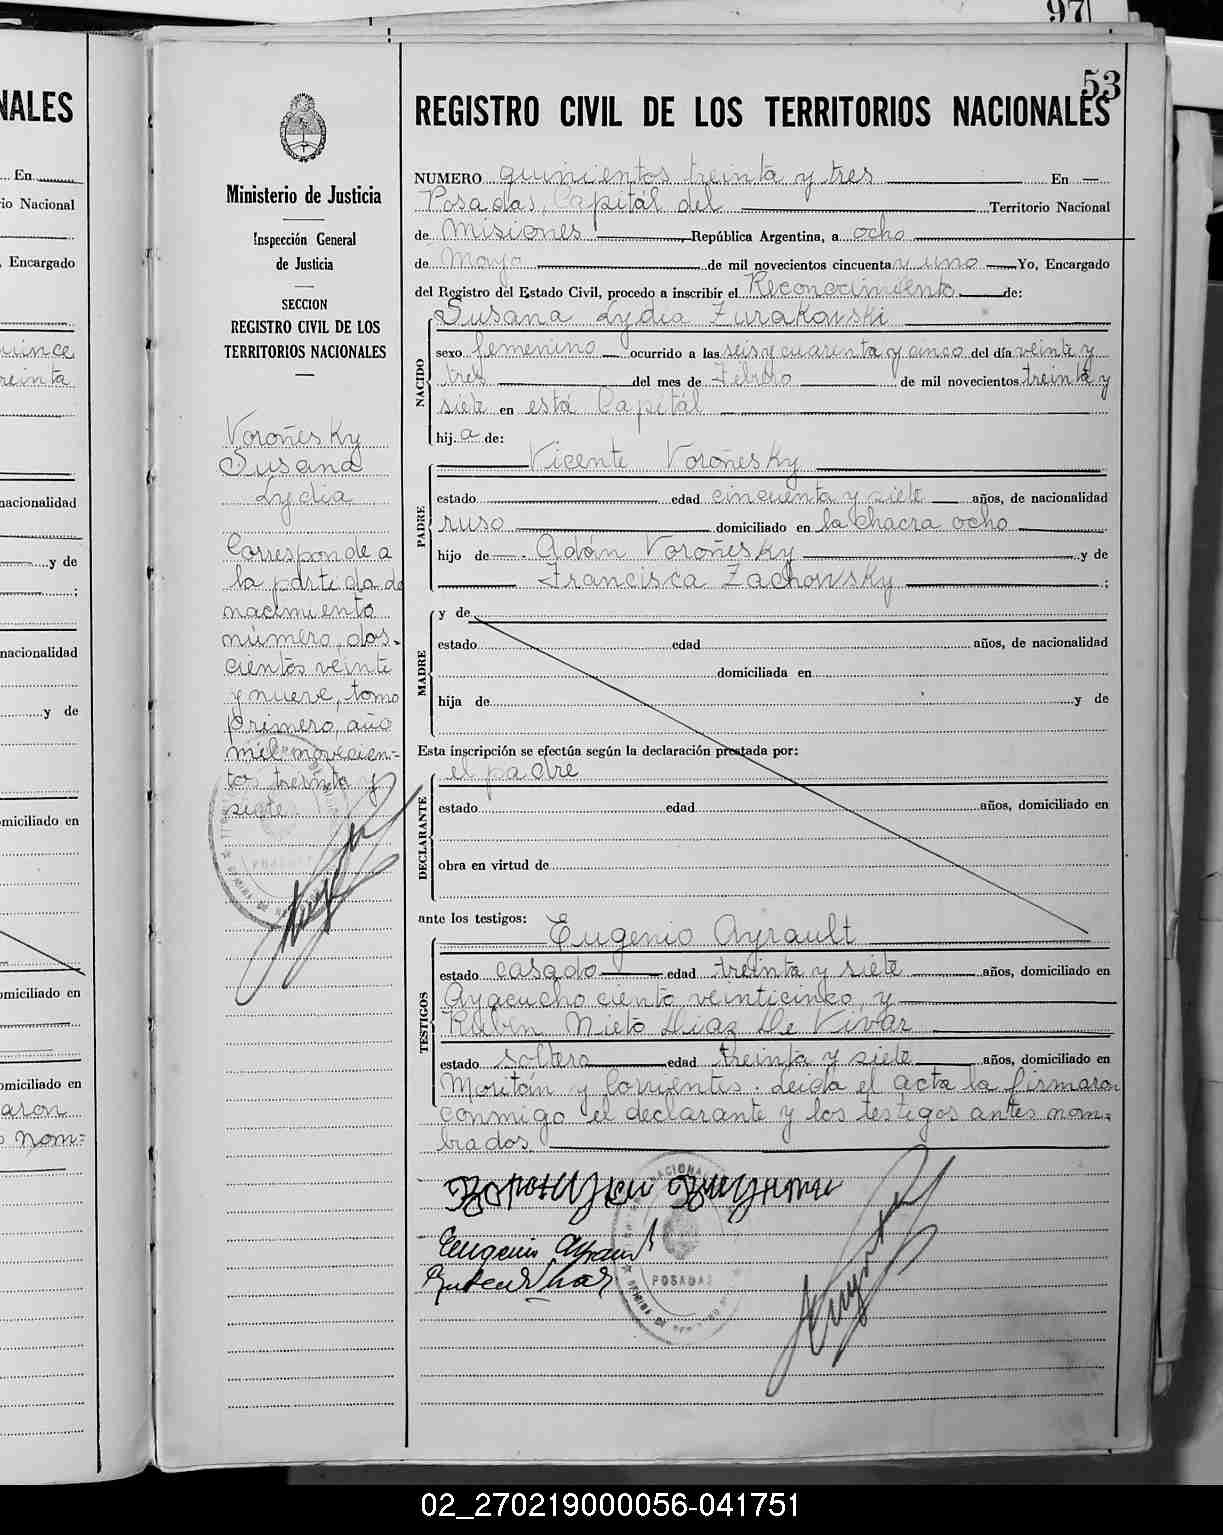 97
NALES
En
io Nacional
, Encargado
uince
reinta
nacionalidad
y de
;
nacionalidad
y de
miciliado en
omiciliado en
omiciliado en
aron
nom=
53
Ministerio de Justicia
Inspección General
de Justicia
SECCION
REGISTRO CIVIL DE LOS
TERRITORIOS NACIONALES
Voroñesky
Susana
Lydia
Corresponde a
la partida de
nacimiento
número, dos-
cientos veinte
y nueve, tomo
primero, año
mil novecien-
tos treinta y
siete.
REGISTRO CIVIL DE LOS TERRITORIOS NACIONALES
NUMERO quinientos treinta y tres En
Posadas, Capitál del Territorio Nacional
de Misiones, República Argentina, a ocho
de Mayo de mil novecientos cincuenta y uno Yo, Encargado
del Registro del Estado Civil, procedo a inscribir el Reconocimiento de:
NACIDO
Susana Lydia Zurakowski
sexo femenino ocurrido a las seis y cuarenta y cinco del día veinte y
tres del mes de Febrero de mil novecientos treinta y
siete en está Capitál
hij a de:
PADRE
Vicente Voroñesky
estado edad cincuenta y siete años, de nacionalidad
ruso domiciliado en la chacra ocho
hijo de Adán Voroñesky y de
Francisca Zachowsky ;
MADRE
y de
estado edad años, de nacionalidad
domiciliada en
hija de y de
Esta inscripción se efectúa según la declaración prestada por:
DECLARANTE
el padre
estado edad años, domiciliado en
obra en virtud de
ante los testigos:
TESTIGOS
Eugenio Ayrault
estado casado edad treinta y siete años, domiciliado en
Ayacucho ciento veinticinco, y
Rubén Nieto Diaz De Vivar
estado soltero edad treinta y siete años, domiciliado en
Moritán y Corrientes. Leida el acta la firmaron
conmigo el declarante y los testigos antes nom=
brados.
Eugenio Ayrault
POSADAS
02_270219000056-041751